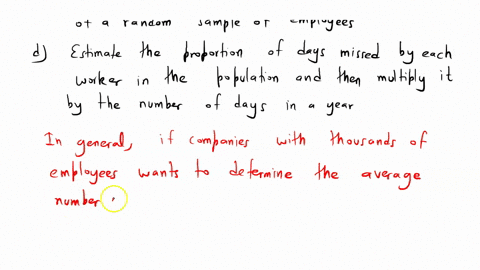 of a random sample of employees
d) Estimate the proportion of days missed by each
worker in the population and then multiply it
by the number of days in a year
In general, if companies with thousands of
employees wants to determine the average
number